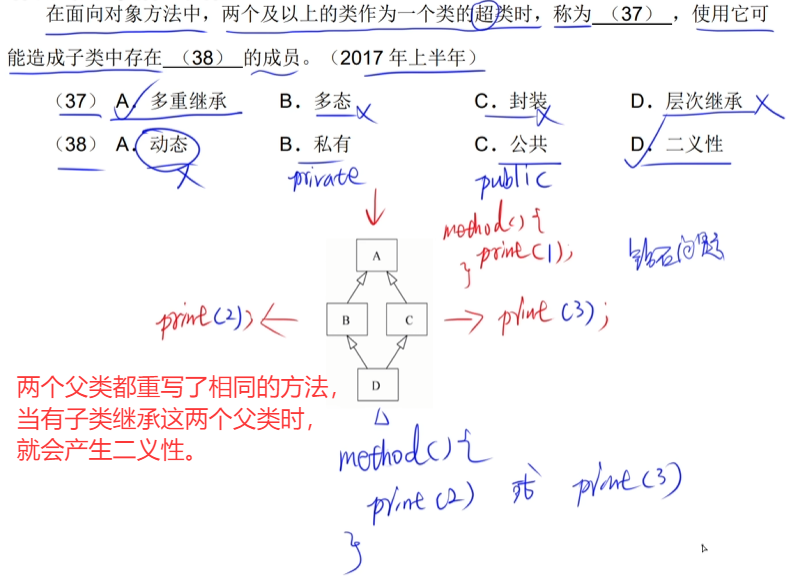 在面向对象方法中，两个及以上的类作为一个类的超类时，称为 （37） ，使用它可
能造成子类中存在 （38） 的成员。（2017 年上半年）
（37） A．多重继承 B．多态 C．封装 D．层次继承
（38） A．动态 B．私有 C．公共 D．二义性
private public
method(){
print(1);
}
钻石问题
A
print(2); B C print(3);
D
两个父类都重写了相同的方法，
当有子类继承这两个父类时，
就会产生二义性。
method(){
print(2) 或 print(3)
}